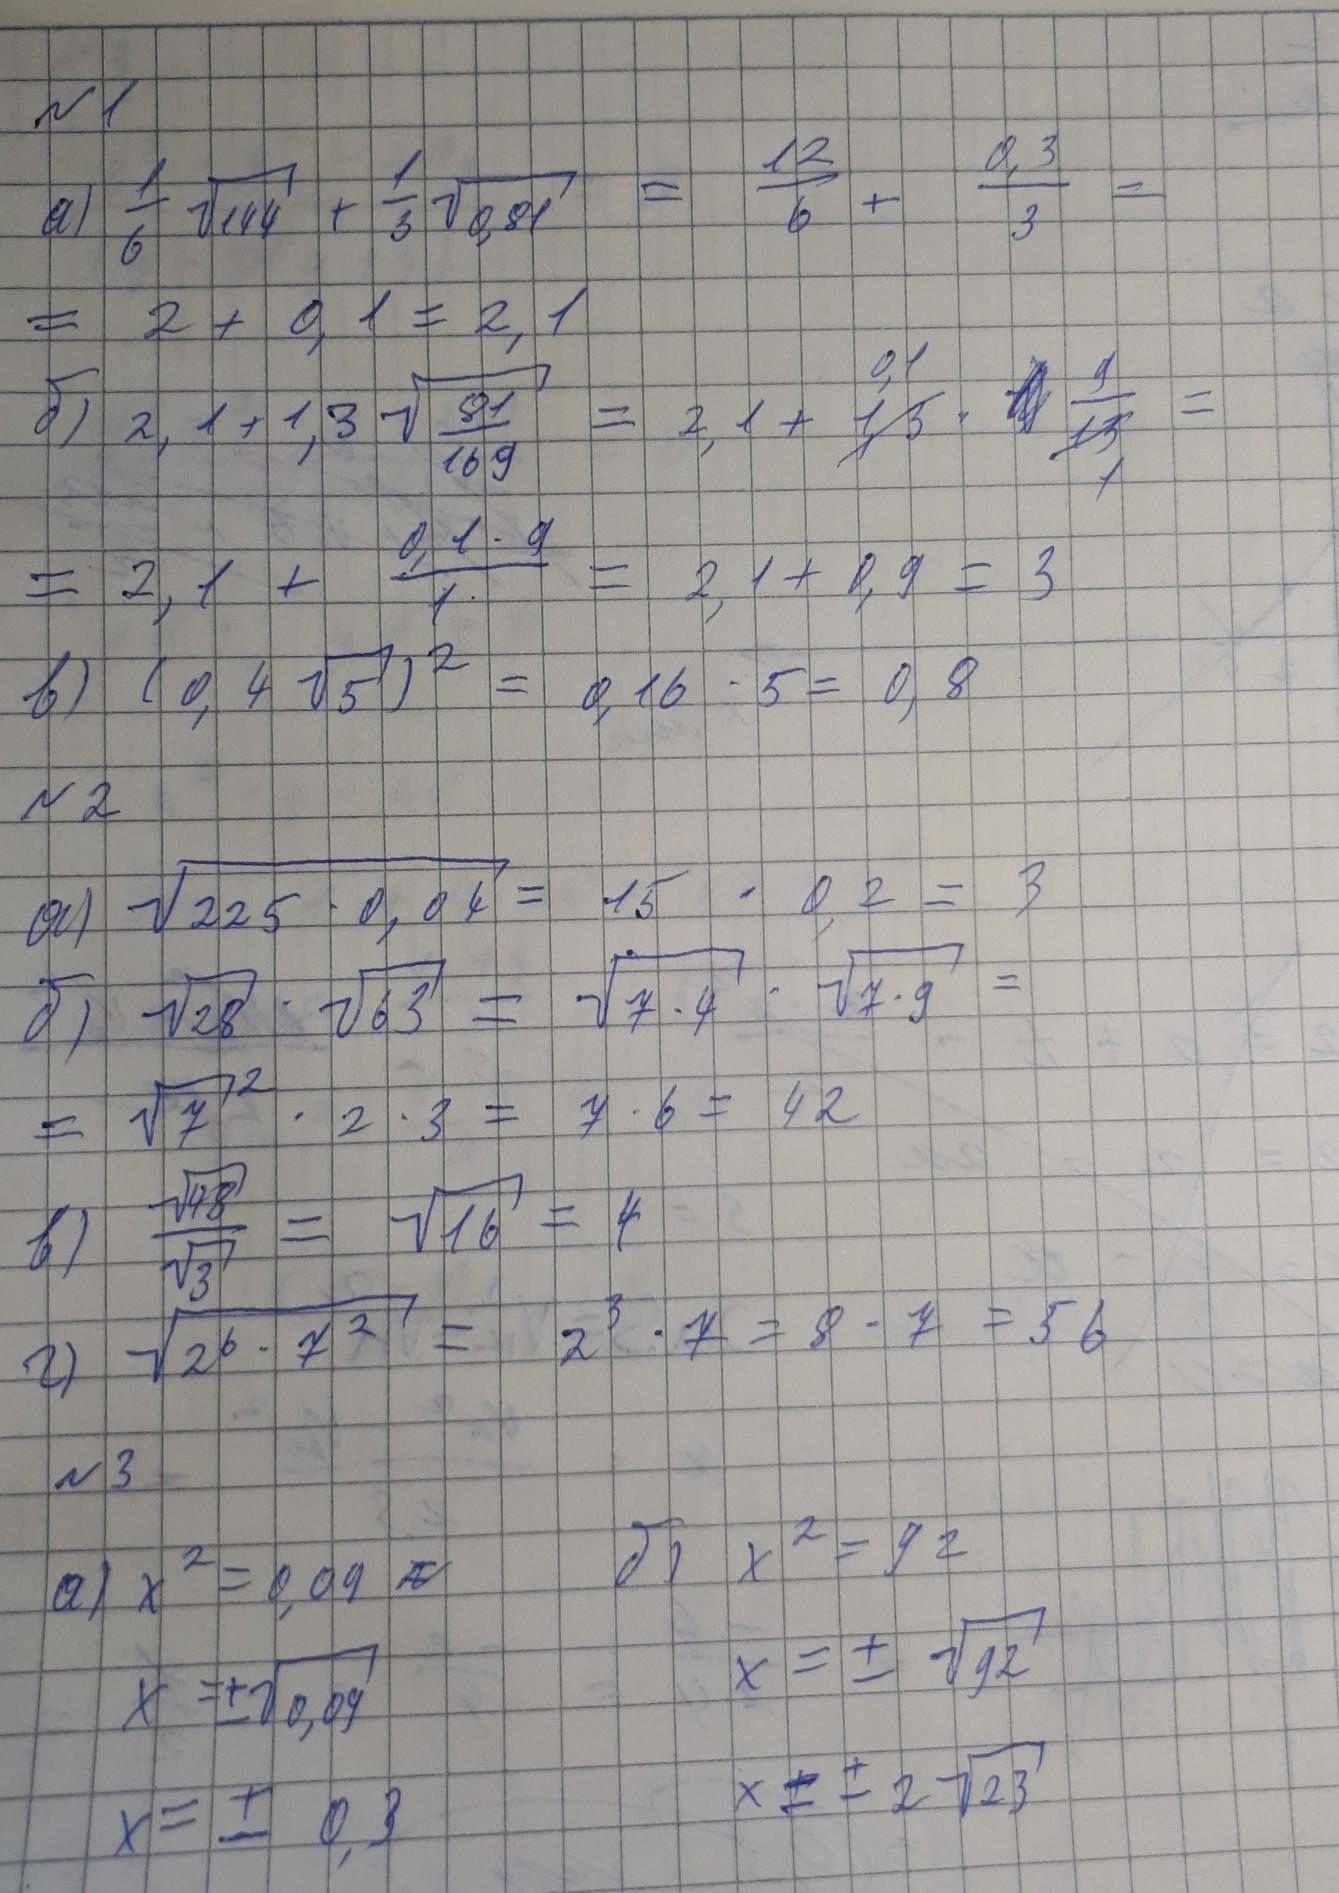 №1
а) 1/6 √144 + 1/3 √0,81 = 12/6 + 0,3/3 =
= 2 + 0,1 = 2,1
б) 2,1 + 1,3 √(81/169) = 2,1 + 1,3 0,1 · 9/13 1 =
= 2,1 + (0,1 · 9)/1 = 2,1 + 0,9 = 3
в) (0,4 √5)² = 0,16 · 5 = 0,8
№2
а) √(225 · 0,04) = 15 · 0,2 = 3
б) √28 · √63 = √(7 · 4) · √(7 · 9) =
= √7² · 2 · 3 = 7 · 6 = 42
в) √48/√3 = √16 = 4
г) √(2⁶ · 7²) = 2³ · 7 = 8 · 7 = 56
№3
а) x² = 0,09
x = ±√0,09
x = ± 0,3
б) x² = 92
x = ± √92
x = ± 2 √23